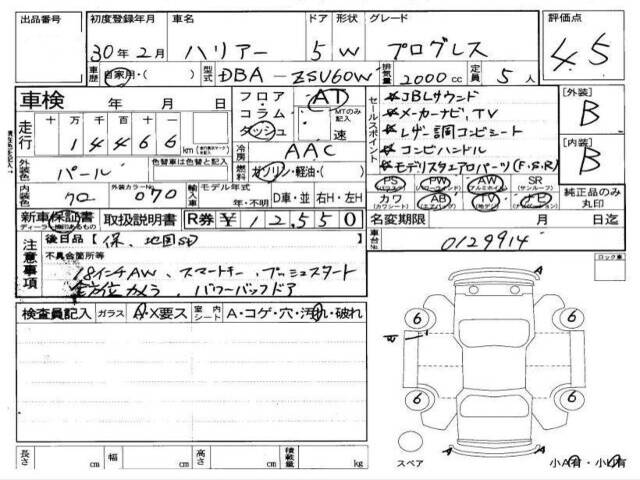 出品番号 初度登録年月 車名 ドア 形状 グレード 評価点
30年2月 ハリアー 5 W プログレス 4.5
車歴 自家用・( ) 型式 DBA-ZSU60W 排気量 2000cc 定員 5人
車検 年 月 日 フロア・コラム・ダッシュ AT MTのみ記入 速
走行 十 万 千 百 十 一
1 4 4 6 6 km
冷房 AAC
外装色 パール 色替車は色替と記入 燃料 ガソリン・軽油・( )
内装色 クロ 外装カラーNo 070 モデル年式 年・不明 D車・並 右H・左H
セールスポイント
★JBLサウンド
★メーカーナビ、TV
★レザー調コンビシート
★コンビハンドル
★モデリスタエアロパーツ(F.S.R)
[外装] B
[内装] B
PS (パワステ) PW (パワーウインド) AW (アルミホイール) SR (サンルーフ)
カワ (カワシート) AB (エアバッグ) TV (地デジ) ナビ
純正品のみ丸印
新車保証書 取扱説明書 R券 ¥12,550 名変期限 月 日迄
ディーラー捺印あるもの
注意事項 後日品【保、地図SD 】 車台No 0129914
不具合箇所等
18インチAW、スマートキー、プッシュスタート
全方位カメラ、パワーバックドア
ロック車
検査員記入 ガラス A・X要ス 室内シート A・コゲ・穴・汚れ・破れ
A A
6 6
6 6
A A
長さ cm 幅 cm 高さ cm 積載量 kg
スペア 小A有・小U有